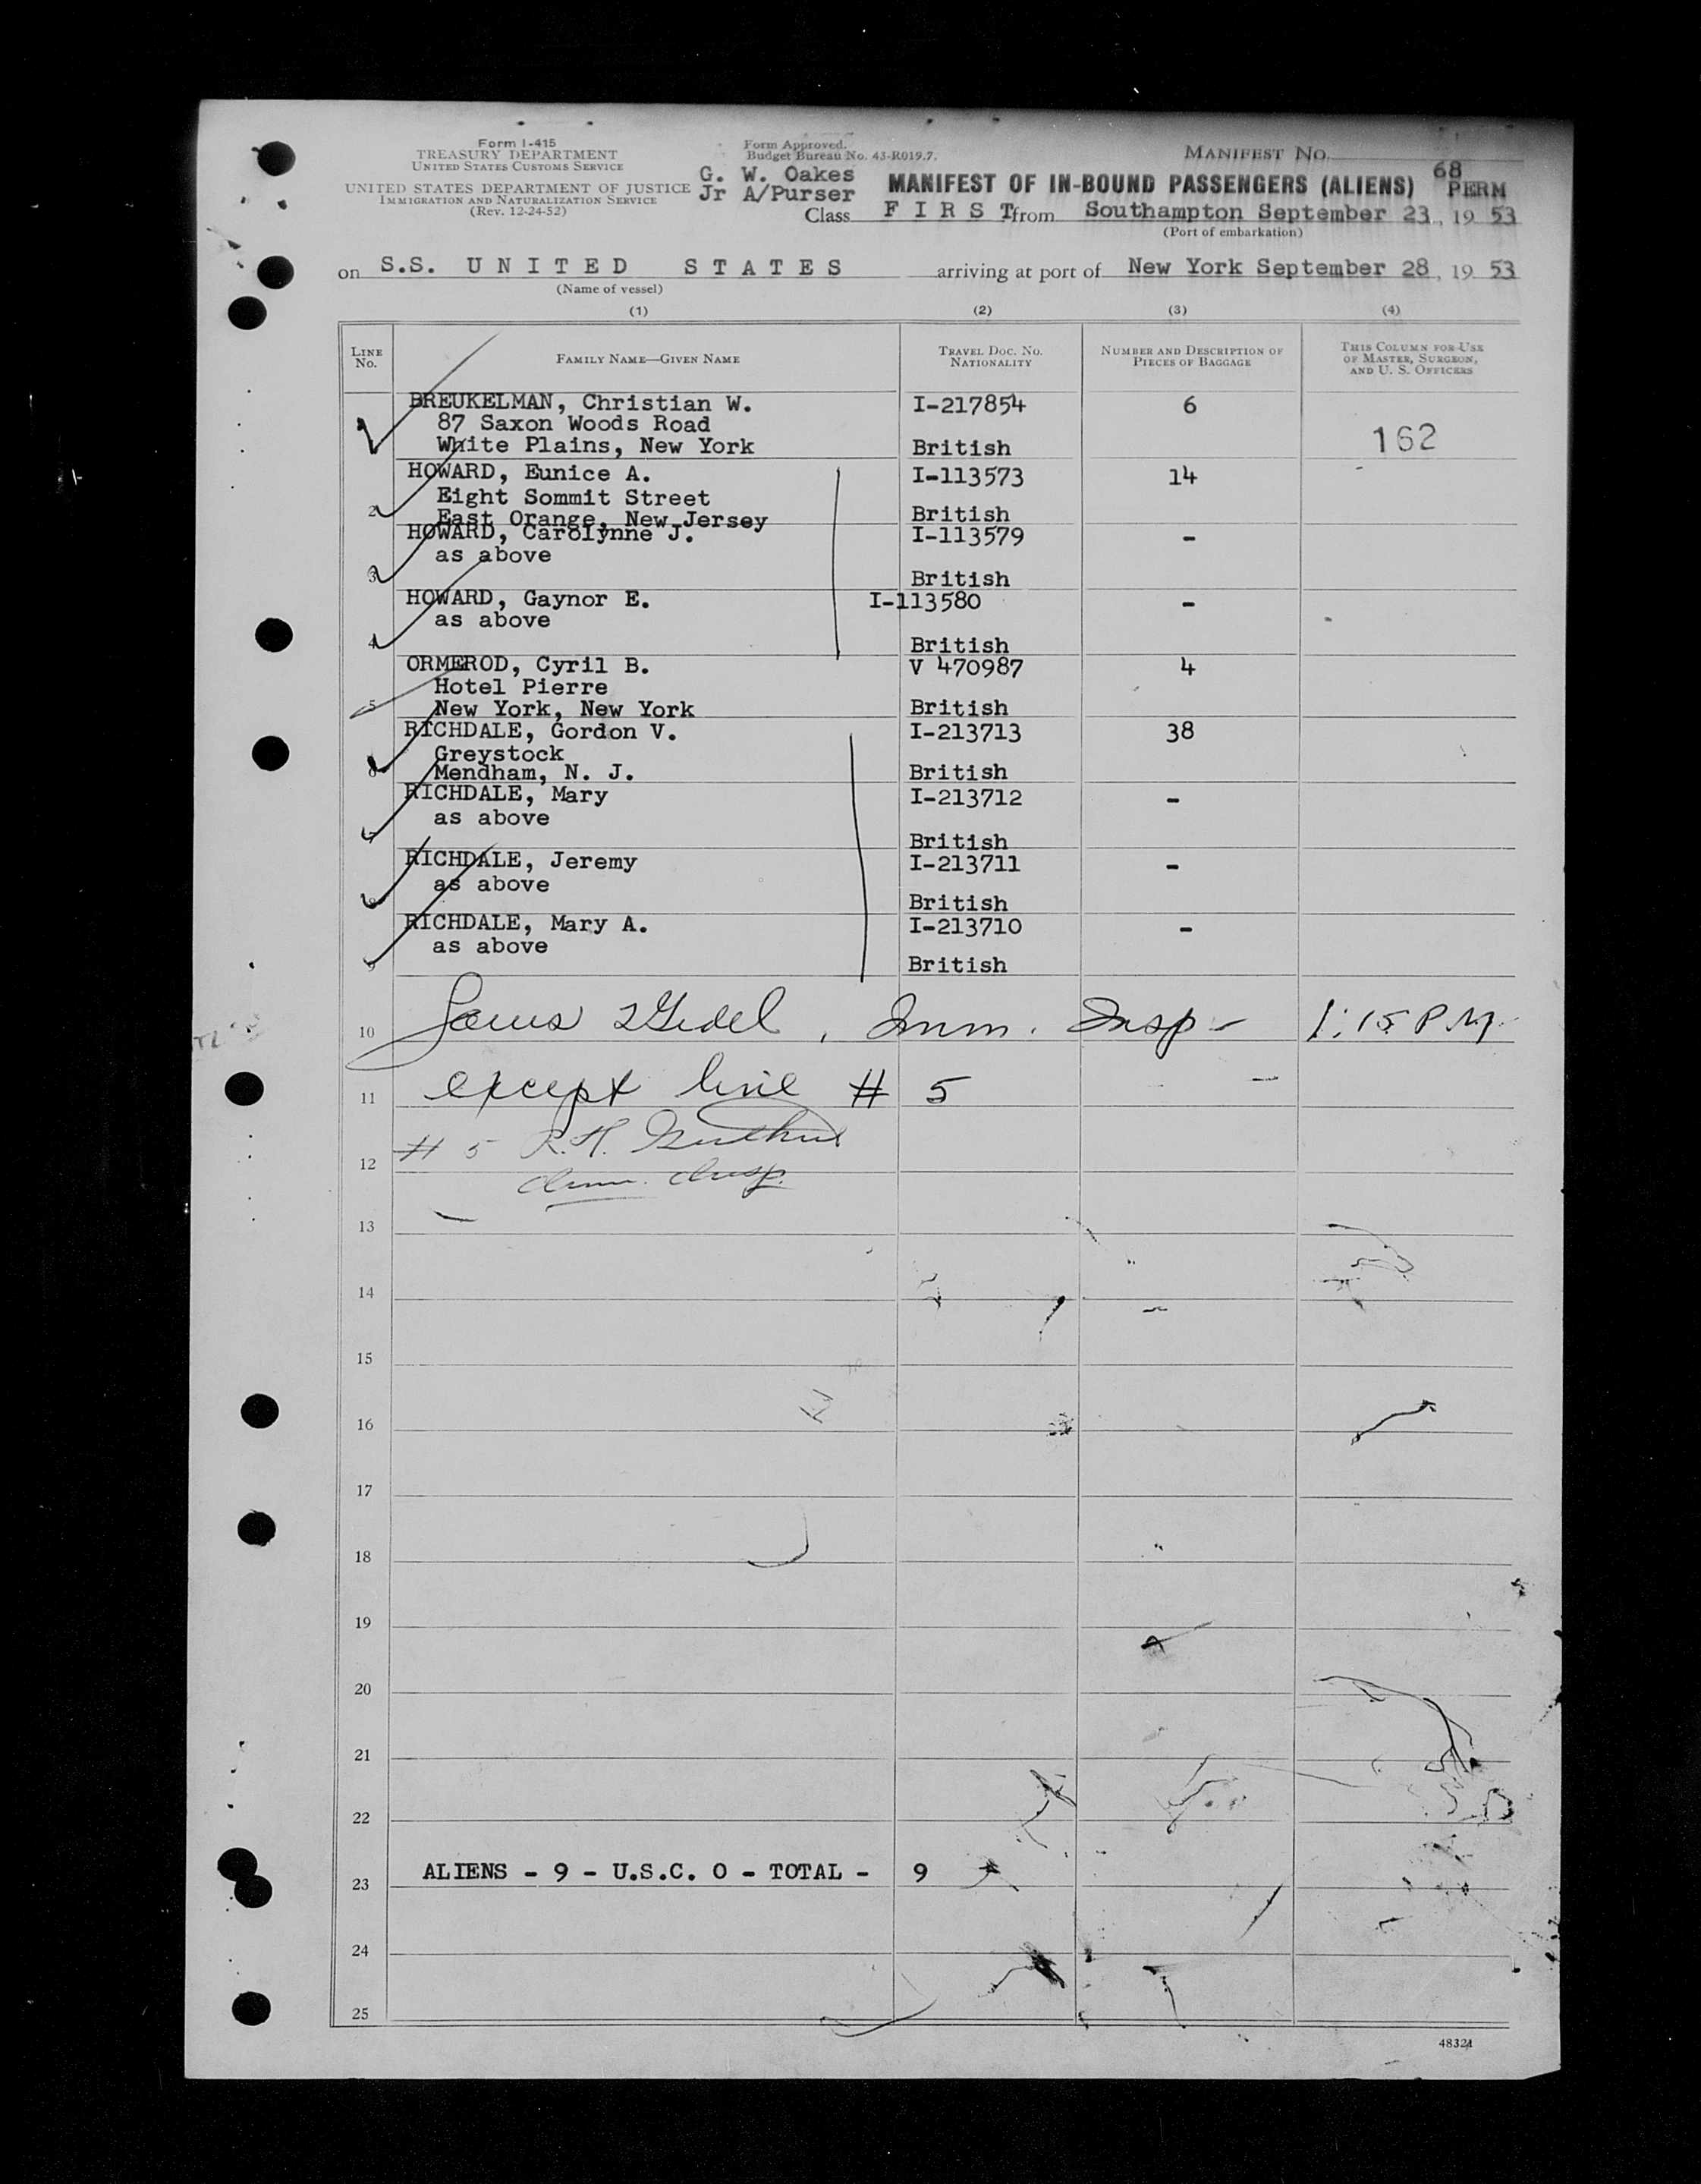 Form I-415
TREASURY DEPARTMENT
UNITED STATES CUSTOMS SERVICE
UNITED STATES DEPARTMENT OF JUSTICE
IMMIGRATION AND NATURALIZATION SERVICE
(Rev. 12-24-52)
Form Approved.
Budget Bureau No. 43-R019.7.
G. W. Oakes
Jr A/Purser
MANIFEST NO.
68
MANIFEST OF IN-BOUND PASSENGERS (ALIENS) PERM
Class F I R S T from Southampton September 23, 19 53
(Port of embarkation)
on S.S. U N I T E D S T A T E S arriving at port of New York September 28, 19 53
(Name of vessel)
(1) (2) (3) (4)
LINE No. FAMILY NAME—GIVEN NAME TRAVEL DOC. NO. NATIONALITY NUMBER AND DESCRIPTION OF PIECES OF BAGGAGE THIS COLUMN FOR USE OF MASTER, SURGEON, AND U. S. OFFICERS
BREUKELMAN, Christian W. I-217854 6
87 Saxon Woods Road
White Plains, New York British 162
HOWARD, Eunice A. I-113573 14
Eight Sommit Street
2 East Orange, New Jersey British
HOWARD, Carolynne J. I-113579 -
as above
3 British
HOWARD, Gaynor E. I-113580 -
as above
4 British
ORMEROD, Cyril B. V 470987 4
Hotel Pierre
5 New York, New York British
RICHDALE, Gordon V. I-213713 38
Greystock
6 Mendham, N. J. British
RICHDALE, Mary I-213712 -
as above
7 British
RICHDALE, Jeremy I-213711 -
as above
8 British
RICHDALE, Mary A. I-213710 -
as above
9 British
10 , Imm. Insp - 1:15 P M.
11 except line # 5
12 # 5 R.H.
Imm. Insp.
13
14
15
16
17
18
19
20
21
22
23 ALIENS - 9 - U.S.C. 0 - TOTAL - 9
24
25
48321